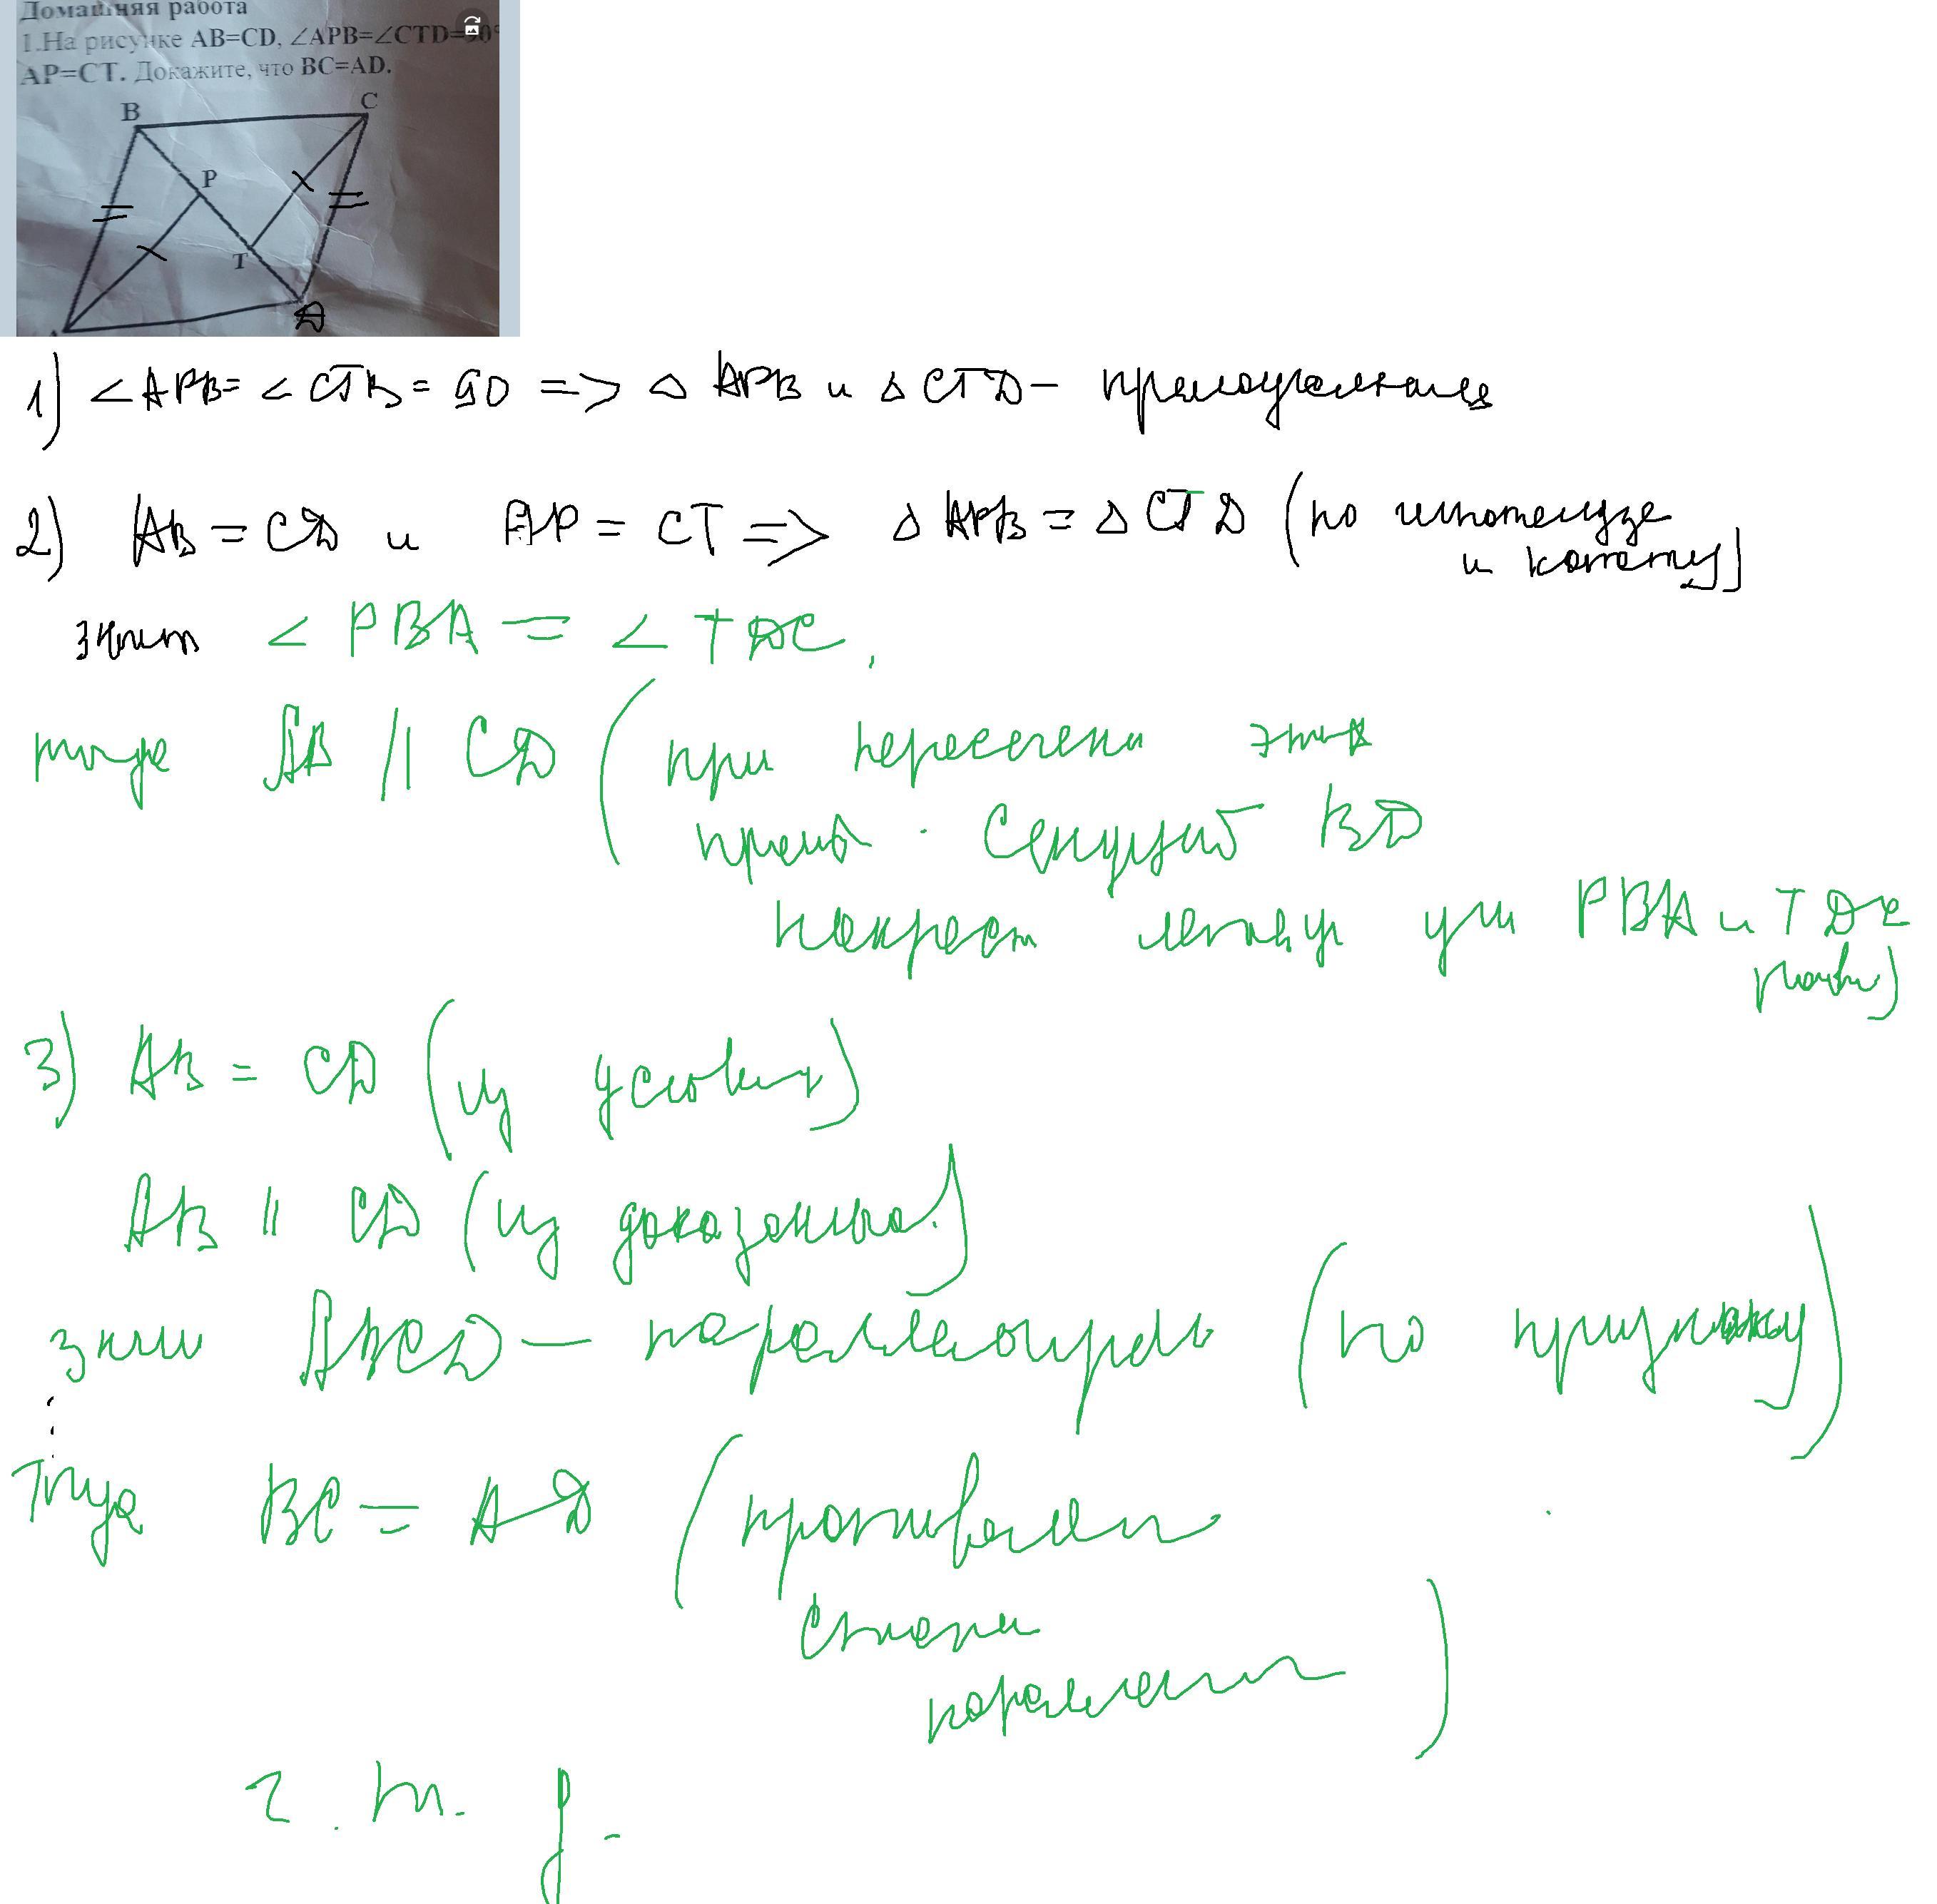 Домашняя работа
1.На рисунке AB=CD, ∠APB=∠CTD=90°
AP=CT. Докажите, что BC=AD.
B
C
P
T
D
1) ∠APB= ∠CTB= 90 => △ APB и △ CTD - прямоугольные
2) AB = CD и AP = CT => △ APB = △ CTD (по гипотенузе
и катету)
значит ∠ PBA = ∠ TDC,
тогда AB || CD (при пересечении этих
прямых секущей BD
накрест лежащ углы PBA и TDC
равны)
3) AB = CD (из условия)
AB || CD (из доказанного)
знач ABCD — параллелограмм (по признаку)
Тогда BC = AD (противопол
стороны
параллелогр)
ч. т. д.